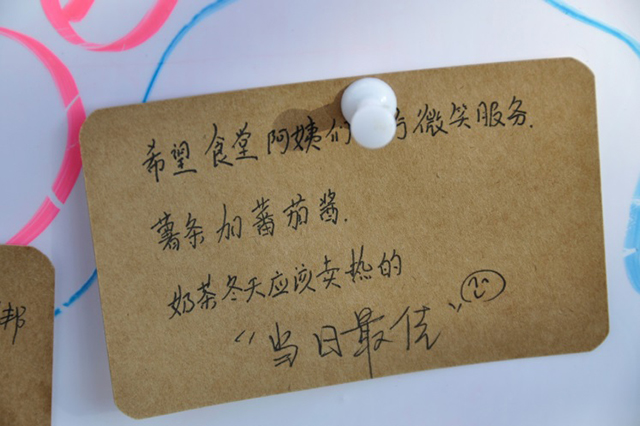 希望食堂阿姨们 微笑服务.
薯条加蕃茄酱.
奶茶冬天应该卖热的
“当日最佳”
邦